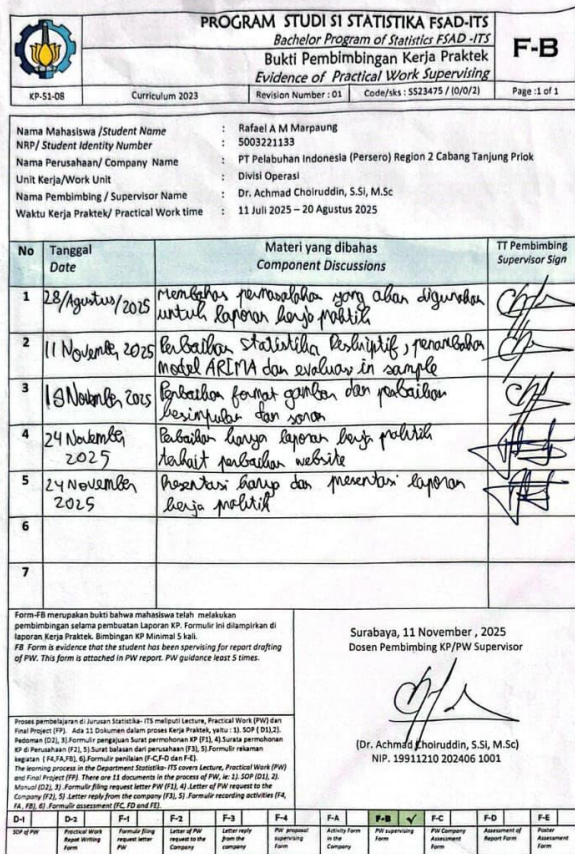 PROGRAM STUDI S1 STATISTIKA FSAD-ITS
Bachelor Program of Statistics FSAD -ITS
Bukti Pembimbingan Kerja Praktek
Evidence of Practical Work Supervising
F-B
KP-S1-08
Curriculum 2023
Revision Number : 01
Code/sks : SS23475 / (0/0/2)
Page :1 of 1
Nama Mahasiswa /Student Name : Rafael A M Marpaung
NRP/ Student Identity Number : 5003221133
Nama Perusahaan/ Company Name : PT Pelabuhan Indonesia (Persero) Region 2 Cabang Tanjung Priok
Unit Kerja/Work Unit : Divisi Operasi
Nama Pembimbing / Supervisor Name : Dr. Achmad Choiruddin, S.Si, M.Sc
Waktu Kerja Praktek/ Practical Work time : 11 Juli 2025 – 20 Agustus 2025
No Tanggal Materi yang dibahas TT Pembimbing
Date Component Discussions Supervisor Sign
1 28/Agustus/2025 Membahas permasalahan yang akan digunakan
untuk laporan kerja praktik
2 11 November 2025 Perbaikan Statistika Deskriptif, penambahan
Model ARIMA dan evaluasi in sample
3 18 November 2025 Perbaikan format gambar dan perbaikan
kesimpulan dan saran
4 24 November Perbaikan laporan kerja
2025 terkait perbaikan website
5 24 November Presentasi dan presentasi laporan
2025 kerja
6
7
Form-FB merupakan bukti bahwa mahasiswa telah melakukan
pembimbingan selama pembuatan Laporan KP. Formulir ini dilampirkan di
laporan Kerja Praktek. Bimbingan KP Minimal 5 kali.
FB Form is evidence that the student has been spervising for report drafting
of PW. This form is attached in PW report. PW guidance least 5 times.
Surabaya, 11 November , 2025
Dosen Pembimbing KP/PW Supervisor
(Dr. Achmad Choiruddin, S.Si, M.Sc)
NIP. 19911210 202406 1001
Proses pembelajaran di Jurusan Statistika- ITS meliputi Lecture, Practical Work (PW) dan
Final Project (FP). Ada 11 Dokumen dalam proses Kerja Praktek, yaitu : 1). SOP ( D1),2).
Pedoman (D2), 3).Formulir pengajuan Surat permohonan KP (F1), 4).Surata permohonan
KP di Perusahaan (F2), 5).Surat balasan dari perusahaan (F3), 5).Formulir rekaman
kegiatan ( F4,FA,FB), 6).Formulir penilaian (F-C,F-D dan F-E).
The learning process in the Department Statistika- ITS covers Lecture, Practical Work (PW)
and Final Project (FP). There are 11 documents in the process of PW, ie: 1). SOP (D1), 2).
Manual (D2), 3). Formulir filing request letter PW (F1), 4). Letter of PW request to the
Company (F2), 5). Letter reply from the company (F3), 5) .Formulir recording activities (F4,
FA, FB), 6) .Formulir assessment (FC, FD and FE).
D-1 D-2 F-1 F-2 F-3 F-4 F-A F-B ✓ F-C F-D F-E
SOP of PW
Practical Work Report Writing Form
Formulir filing request letter PW
Letter of PW request to the Company
Letter reply from the company
PW proposal supervising Form
Activity Form in the Company
PW supervising Form
PW Company Assessment Form
Assessment of Report Form
Poster Assessment Form